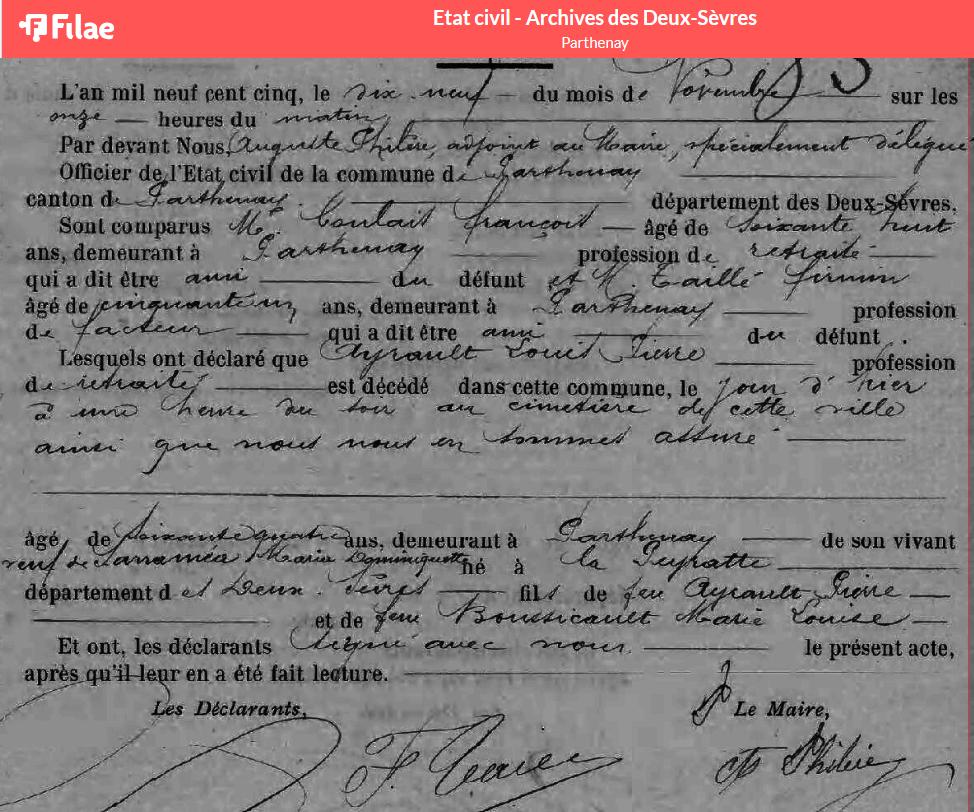 Filae
Etat civil - Archives des Deux-Sèvres
Parthenay
L'an mil neuf cent cinq, le dix neuf du mois de Novembre sur les
onze heures du matin
Par devant Nous, Auguste Philère, adjoint au Maire, spécialement délégué
Officier de l'Etat civil de la commune de Parthenay
canton de Parthenay département des Deux-Sèvres.
Sont comparus M. François âgé de soixante huit
ans, demeurant à Parthenay profession de retraité
qui a dit être ami du défunt et M. Taillé Firmin
âgé de cinquante un ans, demeurant à Parthenay profession
de facteur qui a dit être ami du défunt.
Lesquels ont déclaré que Ayrault Louis Pierre profession
de retraité est décédé dans cette commune, le jour d'hier
à une heure du soir au cimetière de cette ville
ainsi que nous nous en sommes assuré
âgé de soixante quatre ans, demeurant à Parthenay de son vivant
veuf de Larramea Marie Dominiquette né à la Peyratte
département des Deux-Sèvres fils de feu Ayrault Pierre
et de feue Boussicault Marie Louise
Et ont, les déclarants signé avec nous le présent acte,
après qu'il leur en a été fait lecture.
Les Déclarants, Le Maire,